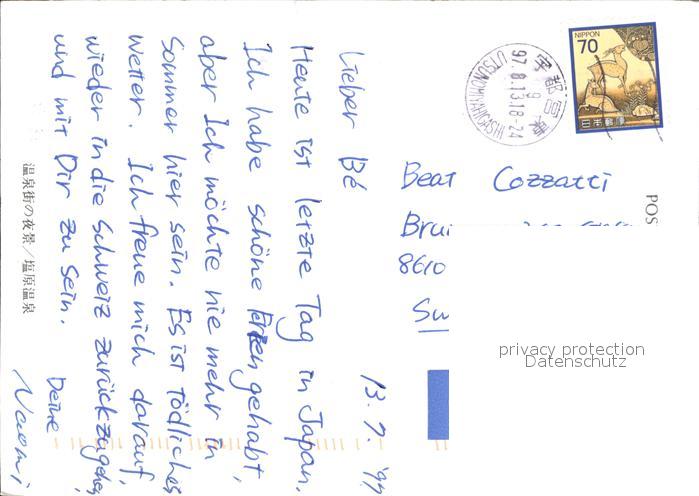 Lieber Bé
13.7.'97
Heute ist letzte Tag in Japan.
Ich habe schöne Ferien gehabt,
aber Ich möchte nie mehr in
Sommer hier sein. Es ist tödliches
Wetter. Ich freue mich darauf,
wieder in die Schweiz zurückzugehen,
und mit Dir zu sein.
Deine
Naomi
温泉街の夜景/塩原温泉
Beat Cozzatti
8610
POS
NIPPON
70
日本郵便
宇都宮東
97.8.13.18-24
UTSUNOMIYAHIGASHI
privacy protection
Datenschutz